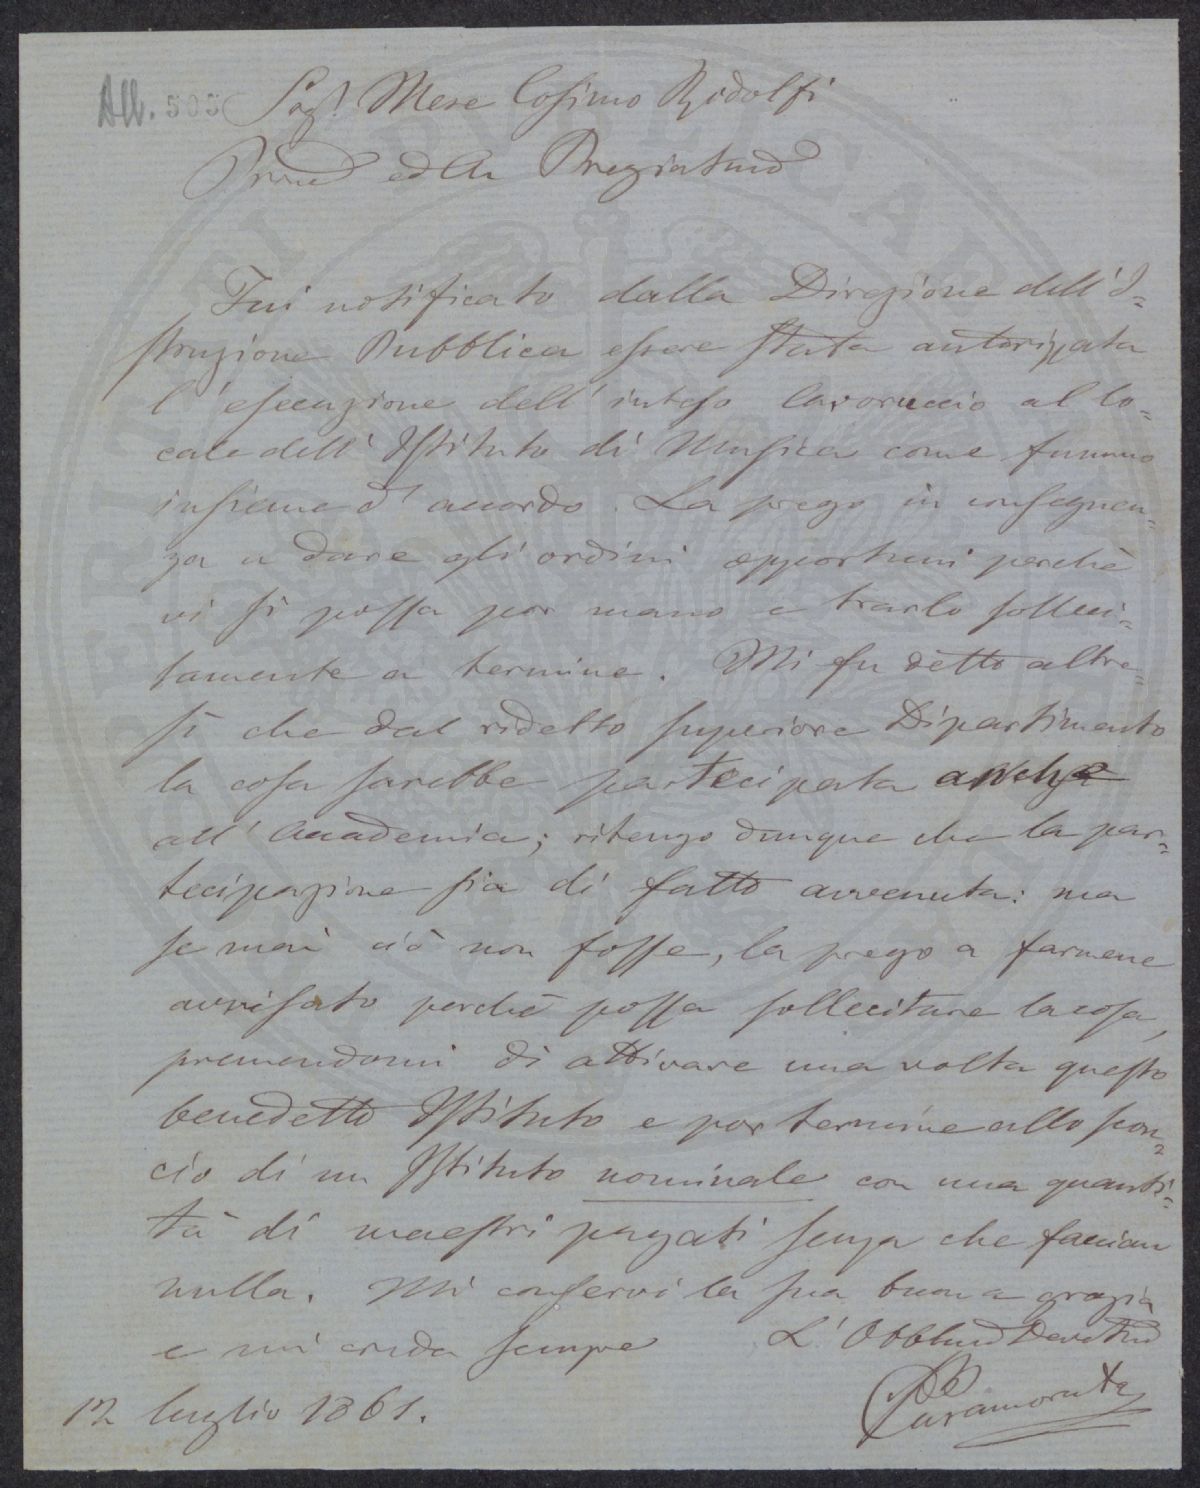 All. 505
Sig.r Mese Cosimo Ridolfi
Prone ed Am Pregiatmo
Fui notificato dalla Direzione dell'I=
struzione Pubblica essere stata autorizzata
l'esecuzione dell'inteso lavoruccio al lo=
cale dell'Istituto di Musica come fummo
insieme d'accordo. La prego in conseguen=
za a dare gli ordini opportuni perchè
vi si possa por mano e trarlo solleci=
tamente a termine. Mi fu detto altre=
sì che dal ridetto superiore Dipartimento
la cosa sarebbe partecipata anche
all'Accademia; ritengo dunque che la par=
tecipazione sia di fatto avvenuta: ma
se mai ciò non fosse, la prego a farmene
avvisato perchè possa sollecitare la cosa,
premendomi di attivare una volta questo
benedetto Istituto e por termine allo scon=
cio di un Istituto nominale con una quanti=
tà di maestri pagati senza che faccian
nulla. Mi conservi la sua buona grazia
e mi creda sempre L'Obblmo Devotmo
12 luglio 1861.